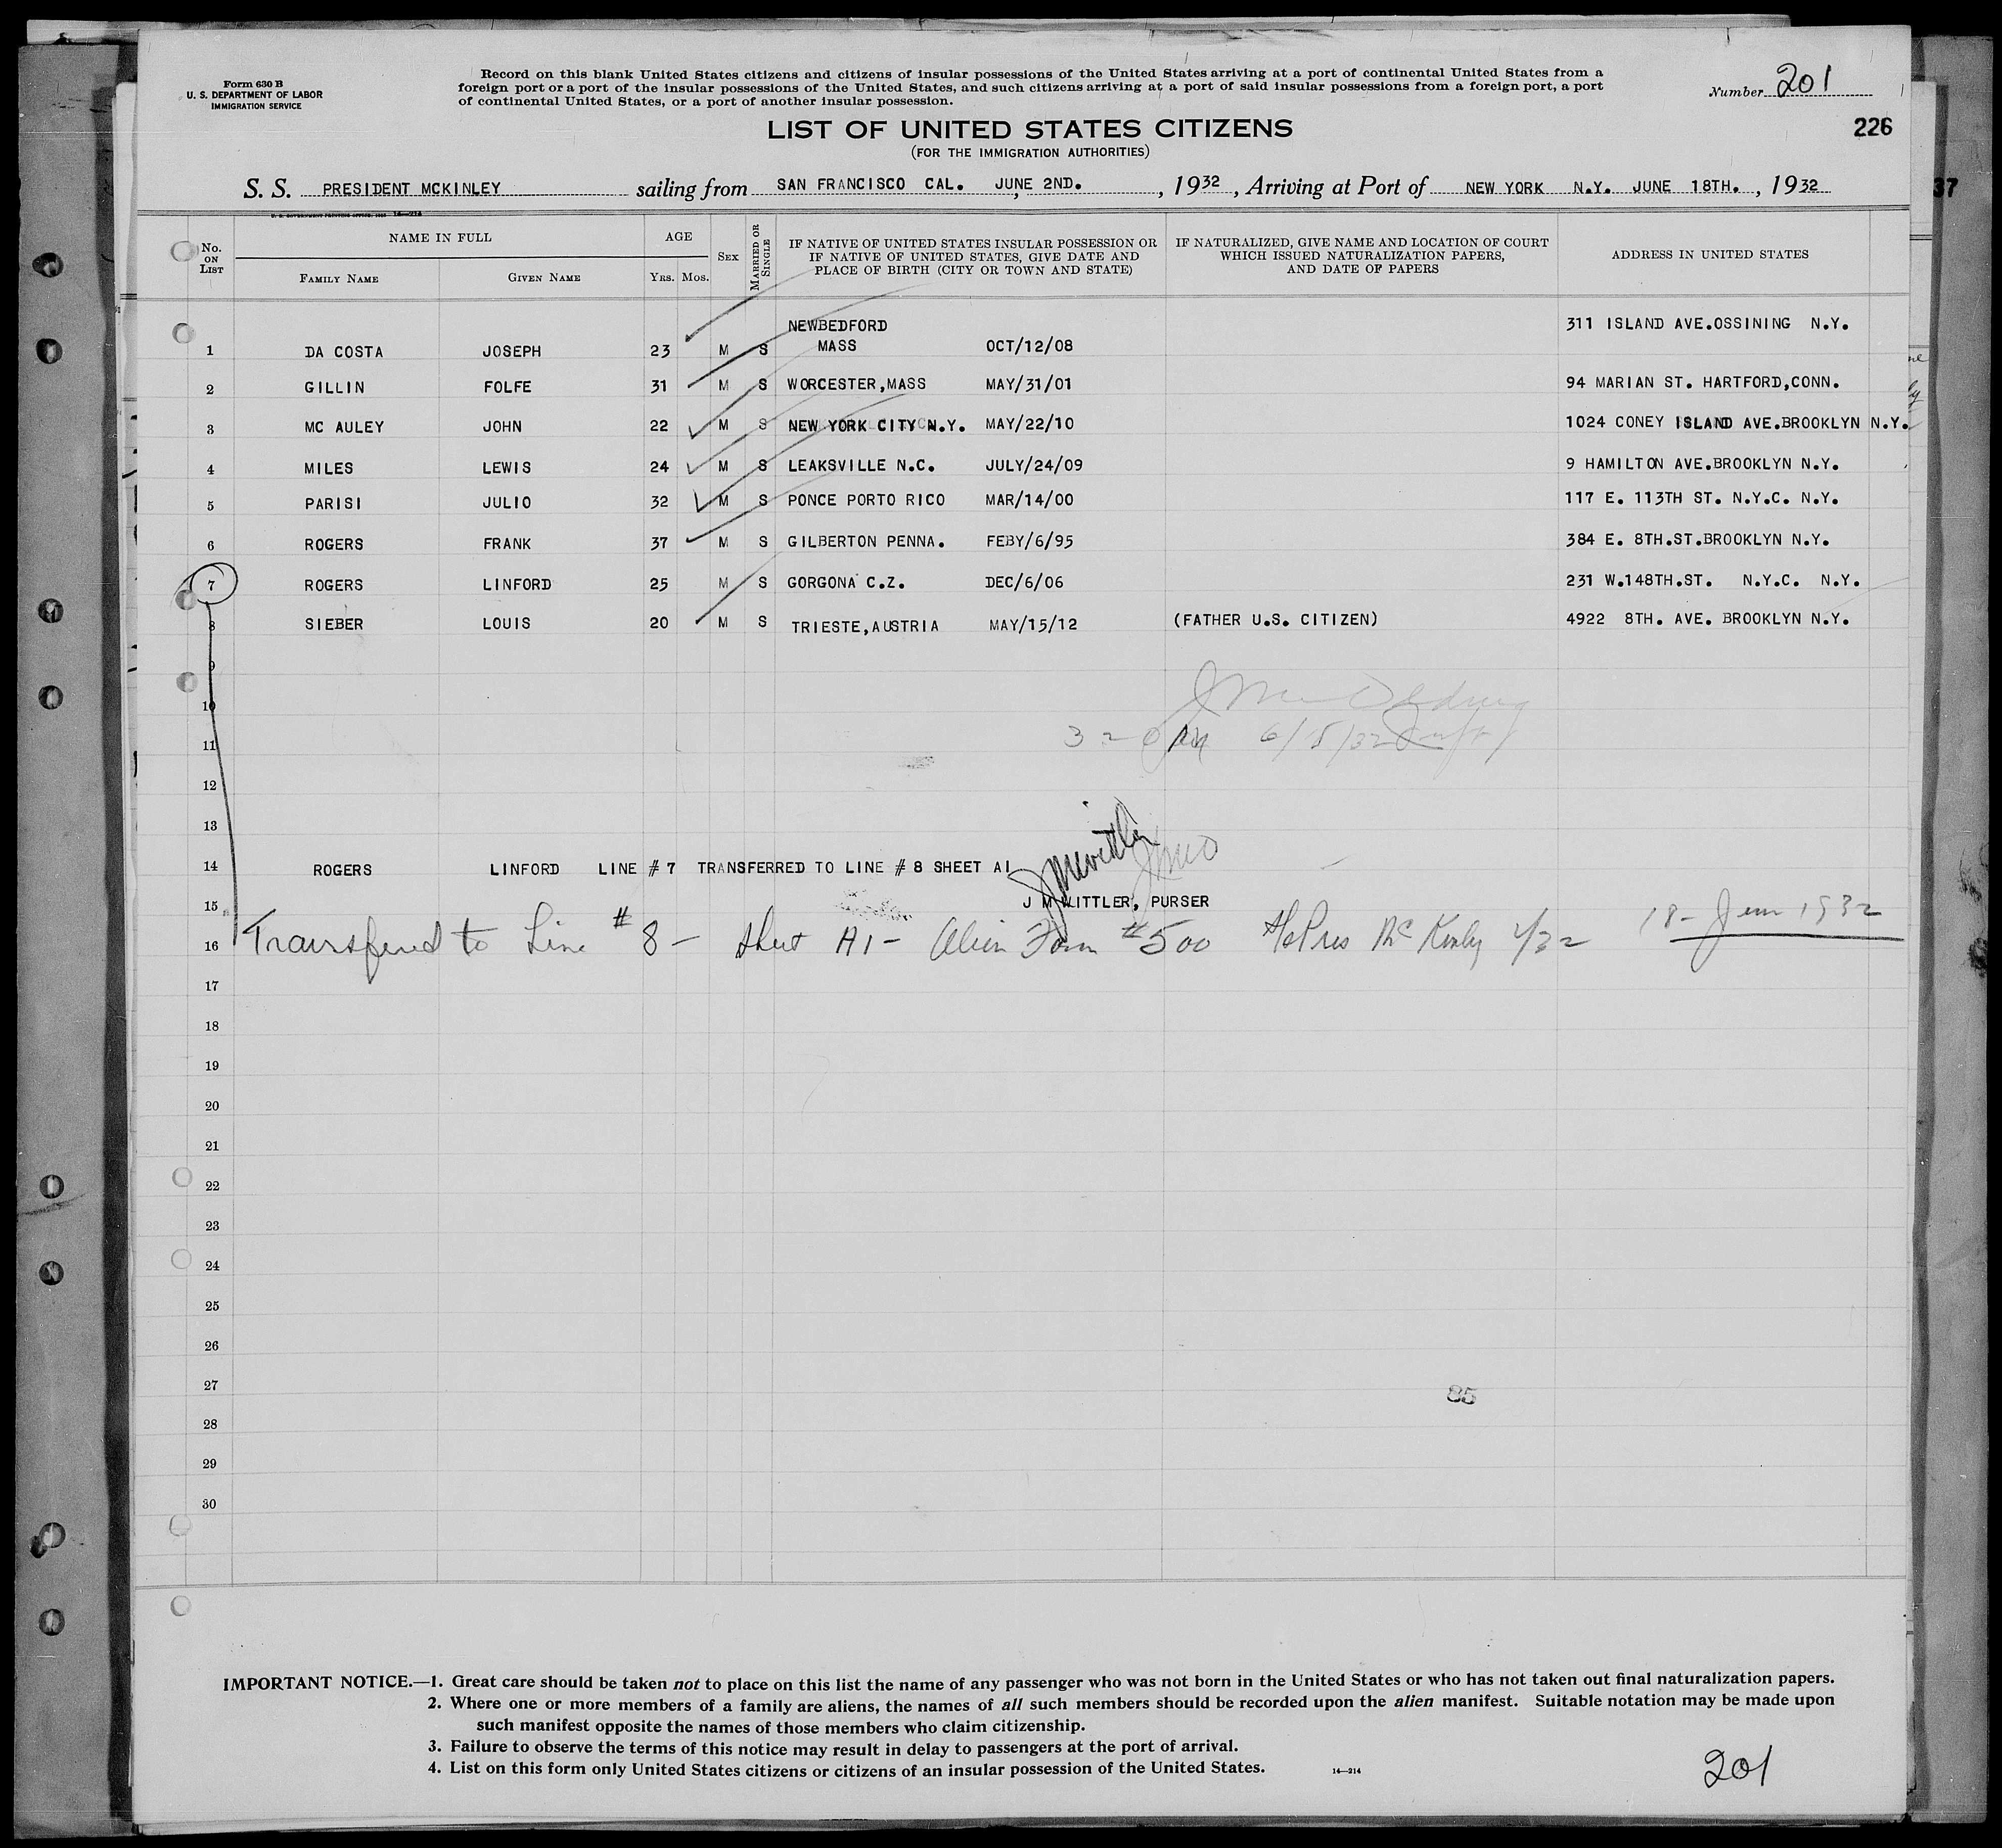 Form 630 B
U. S. DEPARTMENT OF LABOR
IMMIGRATION SERVICE
Record on this blank United States citizens and citizens of insular possessions of the United States arriving at a port of continental United States from a
foreign port or a port of the insular possessions of the United States, and such citizens arriving at a port of said insular possessions from a foreign port, a port
of continental United States, or a port of another insular possession.
Number 201
226
LIST OF UNITED STATES CITIZENS
(FOR THE IMMIGRATION AUTHORITIES)
S. S. PRESIDENT MCKINLEY sailing from SAN FRANCISCO CAL. JUNE 2ND. , 1932 , Arriving at Port of NEW YORK N.Y. JUNE 18TH. , 1932
37
No. ON LIST
NAME IN FULL
FAMILY NAME GIVEN NAME
AGE
YRS. MOS.
SEX
MARRIED OR SINGLE
IF NATIVE OF UNITED STATES INSULAR POSSESSION OR
IF NATIVE OF UNITED STATES, GIVE DATE AND
PLACE OF BIRTH (CITY OR TOWN AND STATE)
IF NATURALIZED, GIVE NAME AND LOCATION OF COURT
WHICH ISSUED NATURALIZATION PAPERS,
AND DATE OF PAPERS
ADDRESS IN UNITED STATES
NEWBEDFORD 311 ISLAND AVE.OSSINING N.Y.
1 DA COSTA JOSEPH 23 M S MASS OCT/12/08
2 GILLIN FOLFE 31 M S WORCESTER,MASS MAY/31/01 94 MARIAN ST. HARTFORD,CONN.
3 MC AULEY JOHN 22 M S NEW YORK CITY N.Y. MAY/22/10 1024 CONEY ISLAND AVE.BROOKLYN N.Y.
4 MILES LEWIS 24 M S LEAKSVILLE N.C. JULY/24/09 9 HAMILTON AVE.BROOKLYN N.Y.
5 PARISI JULIO 32 M S PONCE PORTO RICO MAR/14/00 117 E. 113TH ST. N.Y.C. N.Y.
6 ROGERS FRANK 37 M S GILBERTON PENNA. FEBY/6/95 384 E. 8TH.ST.BROOKLYN N.Y.
7 ROGERS LINFORD 25 M S GORGONA C.Z. DEC/6/06 231 W.148TH.ST. N.Y.C. N.Y.
8 SIEBER LOUIS 20 M S TRIESTE,AUSTRIA MAY/15/12 (FATHER U.S. CITIZEN) 4922 8TH. AVE. BROOKLYN N.Y.
9
10
11
12
13
14 ROGERS LINFORD LINE # 7 TRANSFERRED TO LINE # 8 SHEET A1
15 J M WITTLER, PURSER
16 Transferred to Line #8 - Sheet A1 - Alien Form #500 SS Pres McKinley 18- June 1932
17
18
19
20
21
22
23
24
25
26
27
85
28
29
30
IMPORTANT NOTICE.—1. Great care should be taken not to place on this list the name of any passenger who was not born in the United States or who has not taken out final naturalization papers.
2. Where one or more members of a family are aliens, the names of all such members should be recorded upon the alien manifest. Suitable notation may be made upon
such manifest opposite the names of those members who claim citizenship.
3. Failure to observe the terms of this notice may result in delay to passengers at the port of arrival.
4. List on this form only United States citizens or citizens of an insular possession of the United States.
14—214
201